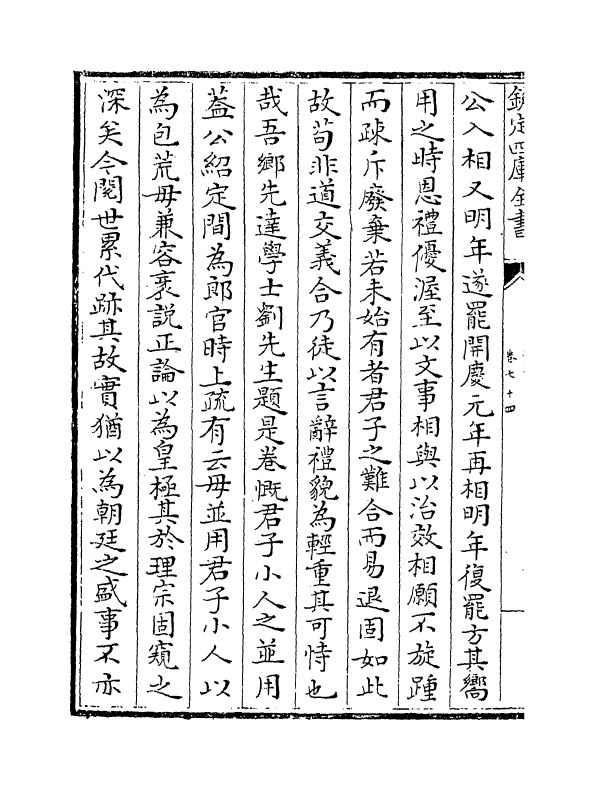 欽定四庫全書
卷七十四
公入相又明年遂罷開慶元年再相明年復罷方其嚮
用之時恩禮優渥至以文事相與以治效相願不旋踵
而疎斥廢棄若未始有者君子之難合而易退固如此
故苟非道交義合乃徒以言辭禮貌為輕重其可恃也
哉吾鄉先達學士劉先生題是卷慨君子小人之並用
葢公紹定間為郎官時上疏有云毋並用君子小人以
為包荒毋兼容衺說正論以為皇極其於理宗固窺之
深矣今閱世累代跡其故實猶以為朝廷之盛事不亦